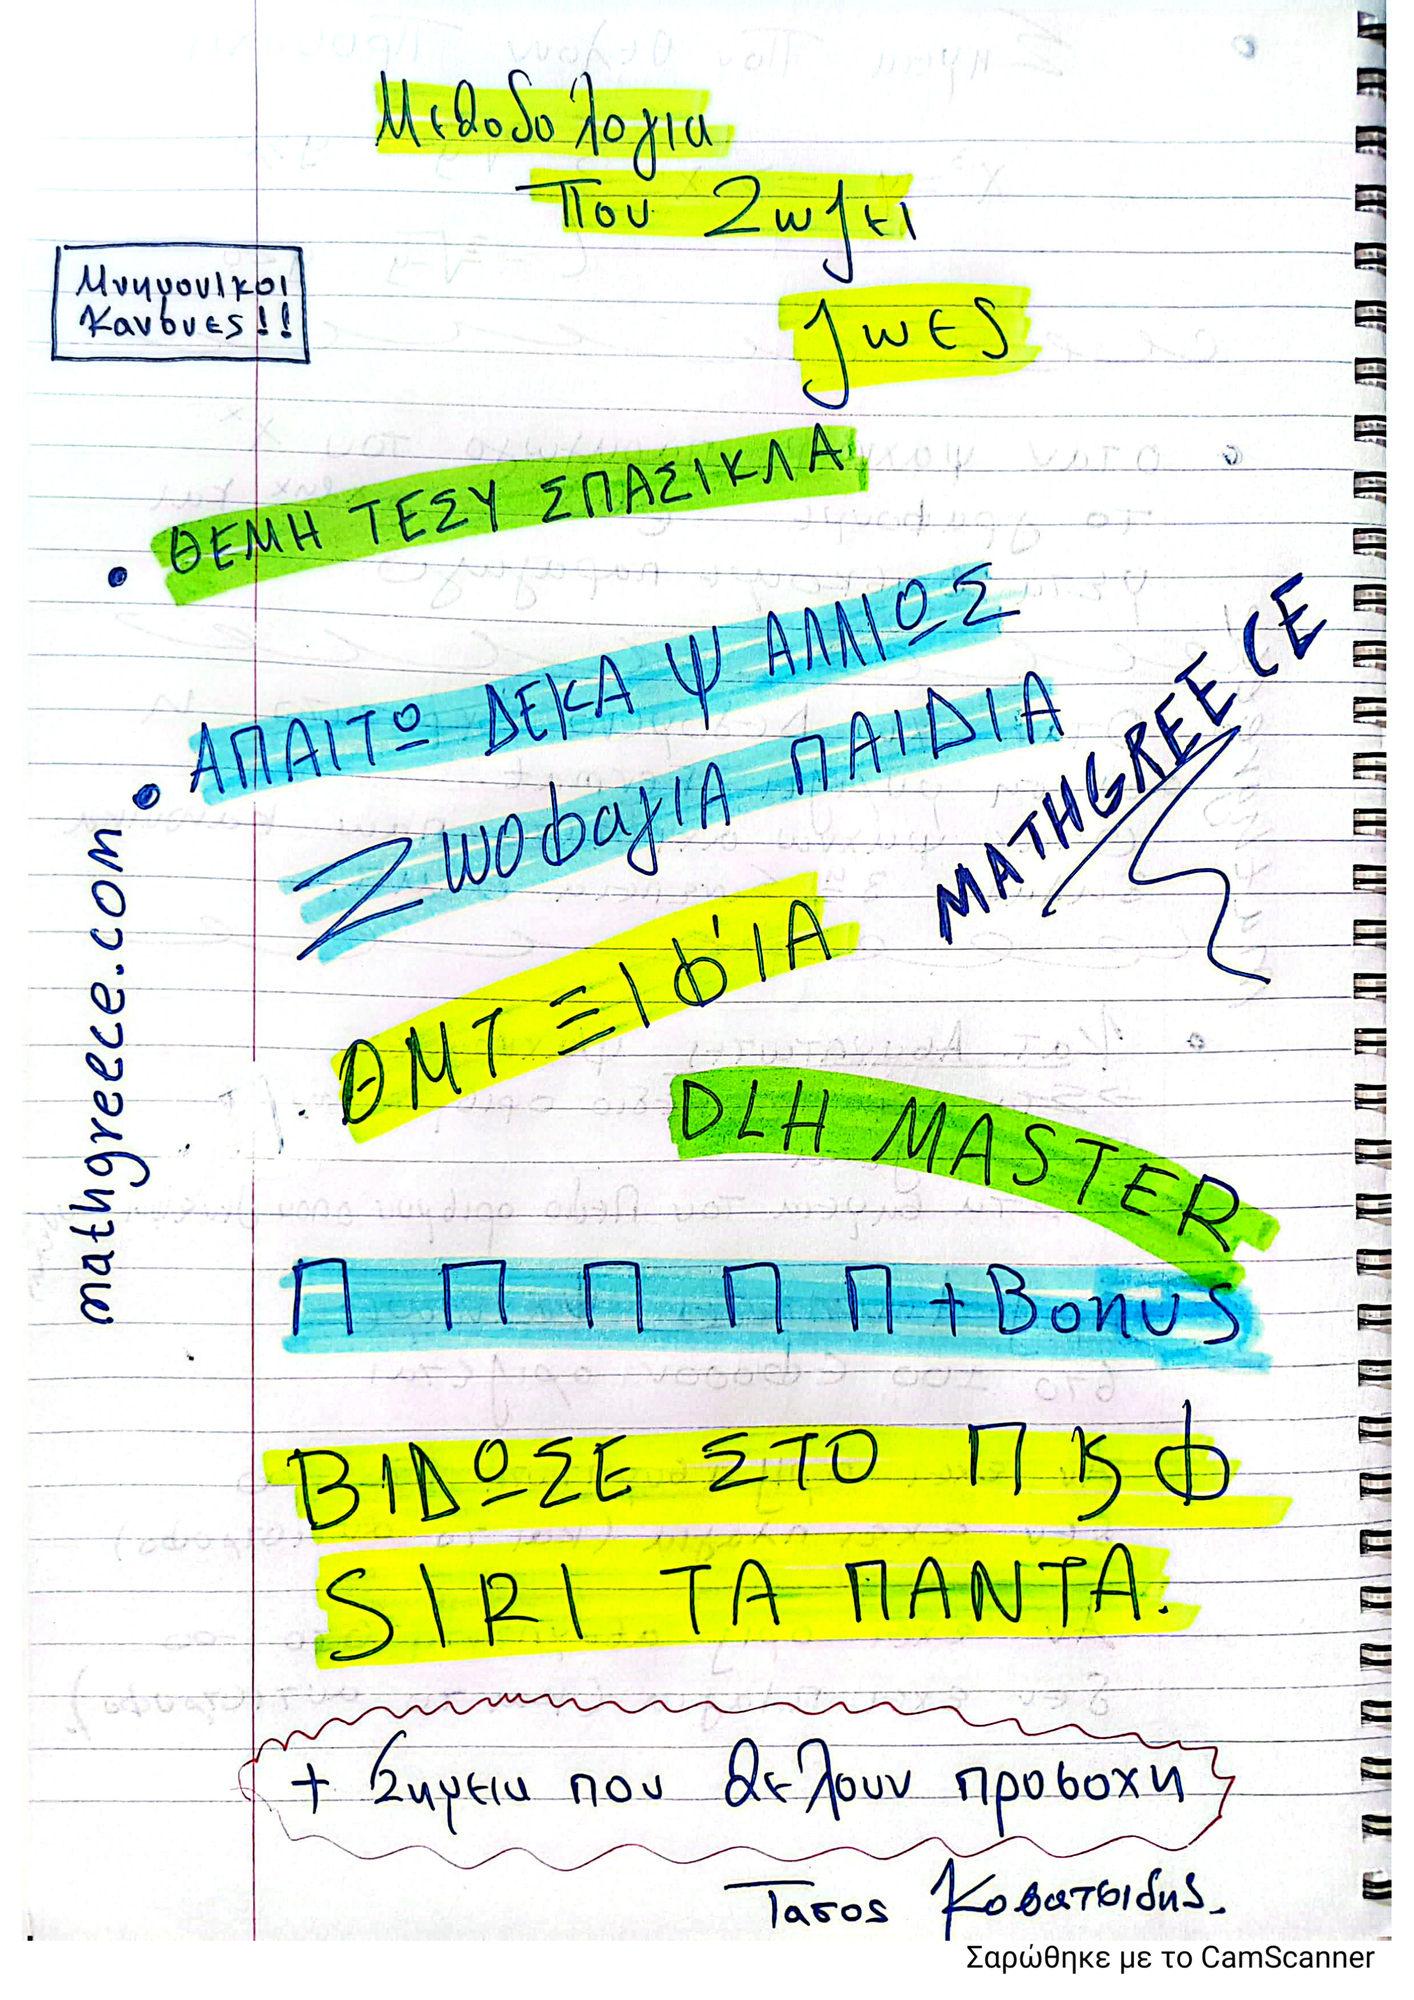 Μεθοδολογια
Που Σωζει
ζωες
Μνημονικοι
Κανονες!!
• ΘΕΜΗ ΤΕΣΥ ΣΠΑΣΙΚΛΑ
• ΑΠΑΙΤΩ ΔΕΚΑ Ψ ΑΛΛΙΩΣ
ΖωοφαγΙΑ ΠΑΙΔΙΑ
MATHGREECE
mathgreece.com
ΘΜΤ ΞΙΦ'ΙΑ
DLH MASTER
Π Π Π Π Π + Bonus
ΒΙΔΩΣΕ ΣΤΟ Π Κ Φ
SIRI ΤΑ ΠΑΝΤΑ.
+ Σημεια που θελουν προσοχη
Τασος
Σαρώθηκε με το CamScanner